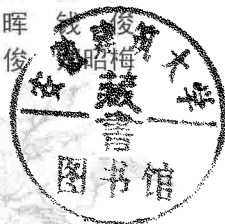 晖 钱 俊
俊 昭梅
大学
藏
書
图书馆